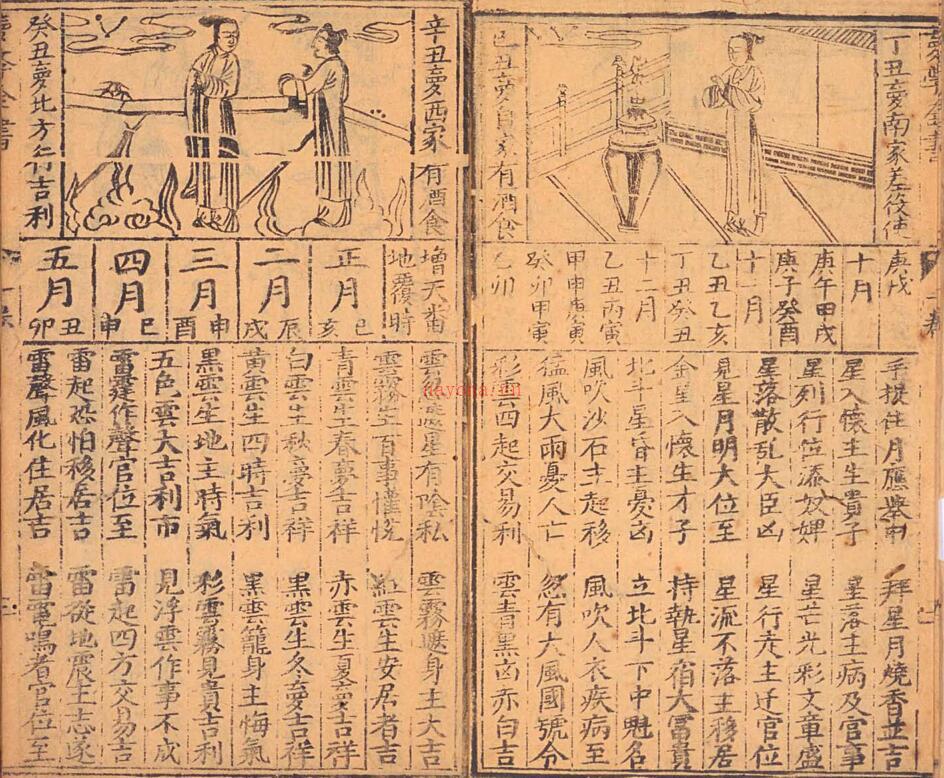 丁丑夢南家差役使
己丑夢 家有酒食
庚戌
十月
庚午甲戌
庚子癸酉
十一月
乙丑乙亥
丁丑癸丑
十二月
乙丑丙寅
甲申庚寅
癸卯甲寅
乙卯
手捉住月應舉中
拜星月燒香並吉
星入懷主生貴子
星落主病及官事
星列行位添奴婢
星芒光彩文章盛
星落散乱大臣凶
星行走主迁官位
見星月明大位至
星流不落主移居
金星入懷生才子
持執星宿大富貴
北斗星昏主憂凶
立北斗下中魁名
風吹沙石主起移
風吹人衣疾病至
猛風大雨憂人亡
忽有大風國號令
彩雲四起交易利
雲青黑凶赤白吉
辛丑夢西家有酒食
癸丑夢北方 有吉利
增天番
地覆時
正月
巳
亥
二月
辰
戌
三月
申
酉
四月
巳
申
五月
丑
卯
雲 遮星有陰私
雲霧遮身主大吉
雲霧生百事懽悅
紅雲生安居者吉
青雲生春夢吉祥
赤雲生夏夢吉祥
白雲生秋夢吉祥
黑雲生冬夢吉祥
黃雲生四時吉利
黑雲籠身主悔氣
黑雲生地主時氣
彩雲霧見貴吉利
五色雲大吉利市
見浮雲作事不成
雷霆作聲官位至
雷起四方交易吉
雷起恐怕移居吉
雷從地震主志遂
雷聲風化住居吉
雷霆鳴者官位至